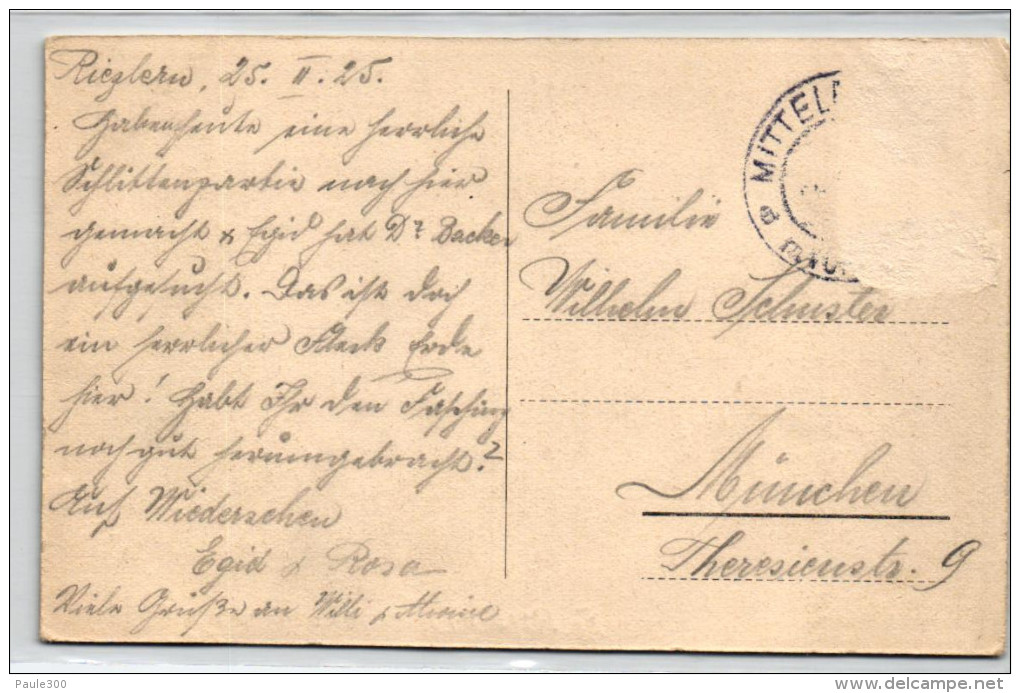 Riezlern, 25. II. 25.
Haben heute eine herrliche
Schlittenpartie nach hier
gemacht & Egid hat Dr. Backer
aufgesucht. Das ist doch
ein herrlicher Fleck Erde
hier! Habt Ihr den Fasching
noch gut herumgebracht?
Auf Wiedersehen
Egid & Rosa
Viele Grüße an Willi &
Familie
Wilhelm Schuster
München
Theresienstr. 9
MITTEL
Paule300
delcampe.net